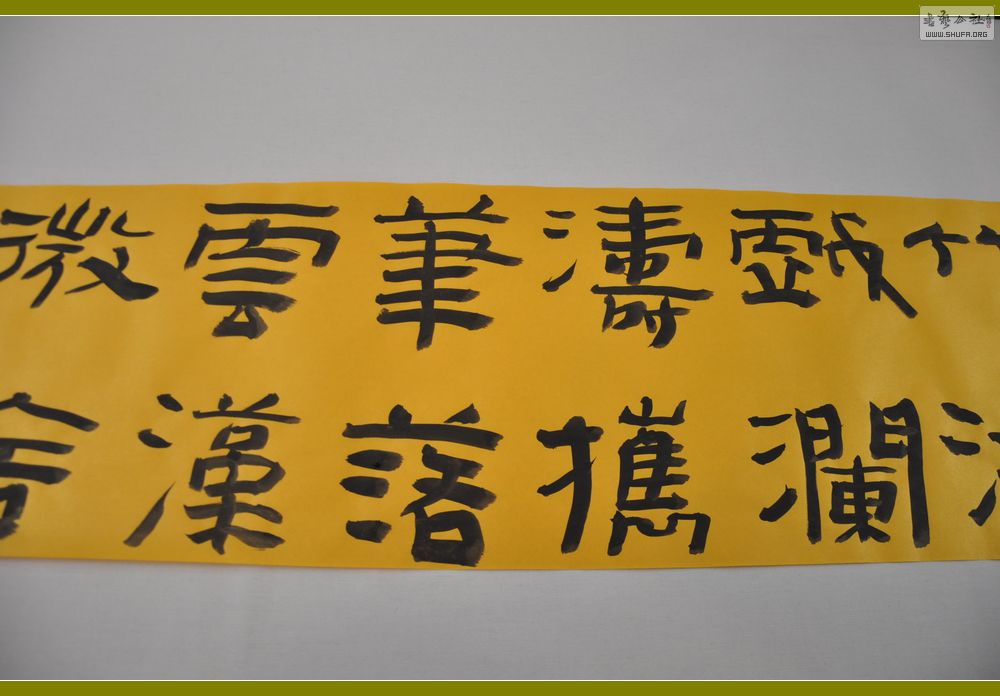 戲瀾
濤攜
筆落
雲漢
微
書藝公社
WWW.SHUFA.ORG